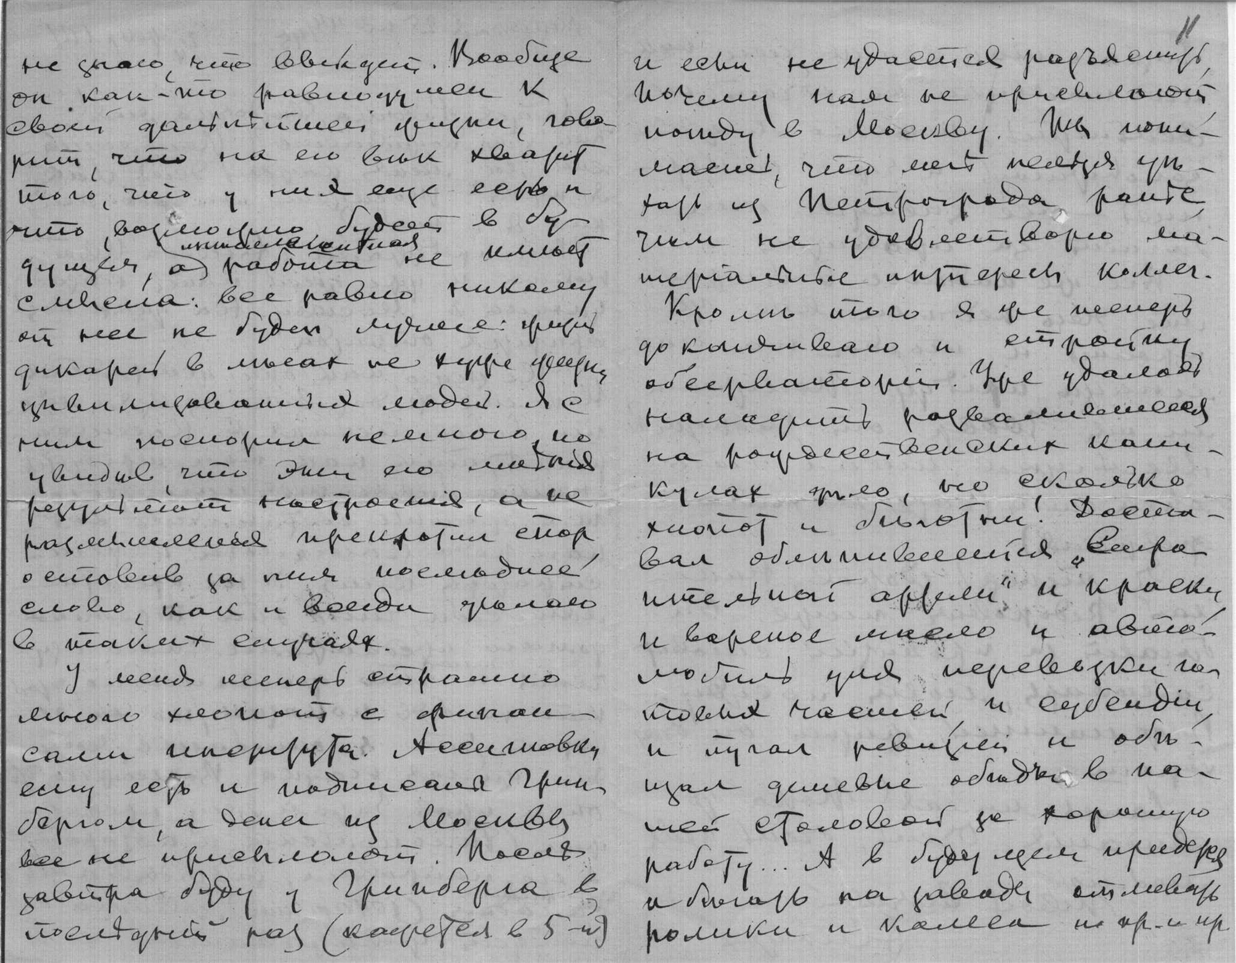 не знаю, что выйдет. Вообще
он как-то равнодушен к
своей дальнѣйшей жизни, гово-
рит, что на его вѣк хватит
того, что у нея еще есть и
что, возможно будет в бу-
дущем, а интеллигентная работа не имѣет
смысла: все равно никому
от нее не будет лучше: жизнь
дикарей в лѣсах не хуже жизни
цивилизованных людей. Я с
ним поспорил немного, но
увидѣв, что это его мнѣния
результат настроения, а не
размышления прекратил спор
оставив за ним последнее
слово, как и всегда дѣлаю
в таких случаях.
У меня теперь страшно
много хлопот с финан-
сами института. Ассигновку
ему есть и подписана Грин-
бергом, а денег из Москвы
все не присылают. После
завтра буду у Гринберга в
послѣдний раз (кажется в 5-й)
11
и если не удастся разъяснить,
почему нам не присылают
поѣду в Москву. Ты пони-
маешь, что мнѣ нельзя уѣ-
хать из Петрограда ранѣе
чѣм не удовлетворю ма-
териальные интересы коллег.
Кромѣ того я уже теперь
доканчиваю и стройку
обсерватории. Уже удалось
наладить развалившееся
на рождественских кани-
кулах дѣло, но сколько
хлопот и бѣготни! Доста-
вал обленившейся „Строи
тельной артели" и краску
и вареное масло и авто-
мобиль для перевозки го-
товых частей, и субсидии,
и пугал ревизией и обѣ-
щал дешевые обѣды в на-
шей столовой за хорошую
работу... А в будущем придется
и бѣгать на заводы отливать
ролики и колеса и пр. и пр.